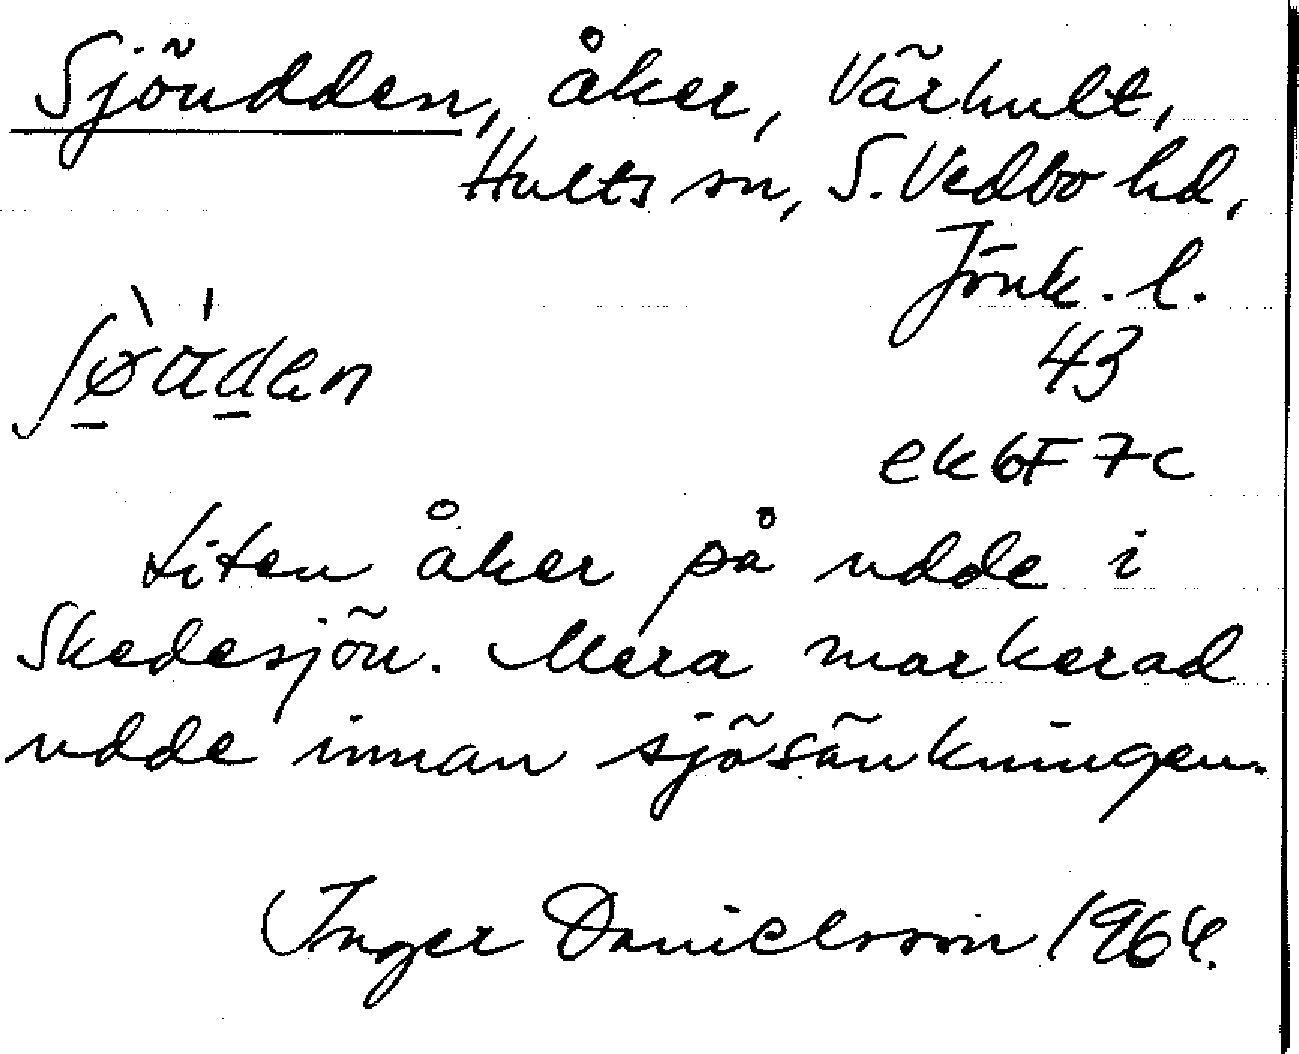 Sjöudden, åker, Värhult,
Hults sn, S. Vedbo hd,
Jönk. l.
43
ek 6F 7c
Liten åker på udde i
Skedesjön. Mera markerad
udde innan sjösänkningen.
Inger Danielsson 1964.